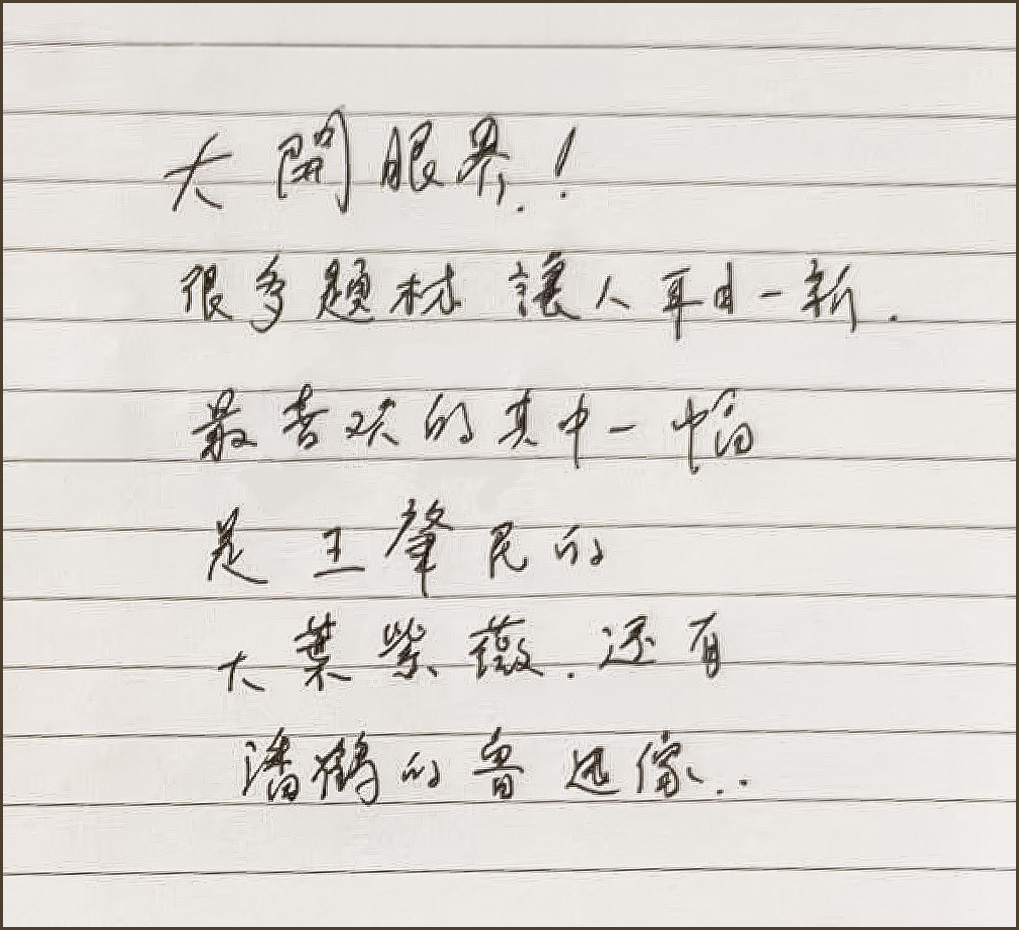 大開眼界!
很多題材讓人耳目一新.
最喜欢的其中一幅
是王肇民的
大葉紫薇.还有
潘鶴的魯迅像..